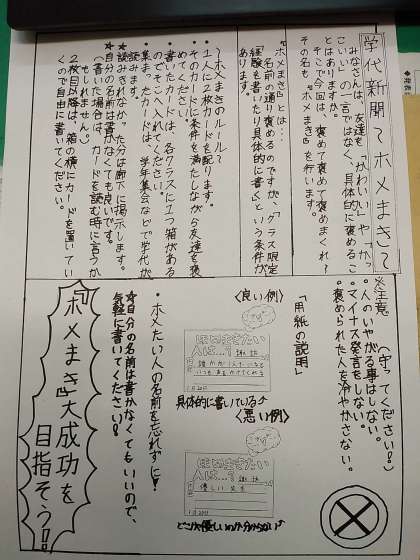 学代新聞〜ホメまき〜
みなさんは、友達を「かわいい」や「かっ
こいい」の一言ではなく、具体的に褒めるこ
とはありますか。
そこで今回は、褒めて褒めて褒めまくれ！
その名も、『ホメまき』を行います。
『ホメまき』とは…
名前の通り褒めるのですが、クラス限定
経験を書いたり具体的に書くという条件が
あります。
〜ホメまきのルール〜
・1人に2枚カードを配ります。
そのカードに条件を満たしながら友達を褒
めてください。
・書いたカードは、各クラスに1つ箱がある
のでそこへ入れてください。
・集まったカードは、学年集会などで学代が
読みます。
★読みきれなかった分は廊下に掲示します。
★自分の名前は書かなくても良いです。
（書いた場合は、カードを読む時に言うか
もしれません。）
2枚目以降は、箱の横にカードを置いてい
くので自由に書いてください。
※注意（守ってください！）
・人のいやがる事はしない。
・マイナス発言をしない。
・褒められた人を冷やかさない。
「用紙の説明」
〈良い例〉
ほめまきたい
人は…? 諏訪
誰かが1人でいると
いつも声をかけてくれる
1月20日
具体的に書いている♪
〈悪い例〉
ほめまきたい
人は…? 諏訪
優しい
1月20日
どこが優しいのか分からない
・ホメたい人の名前を忘れずに！
☆自分の名前は書かなくてもいいので、
気軽に書いてください！
『ホメまき』大成功を
目指そう!!